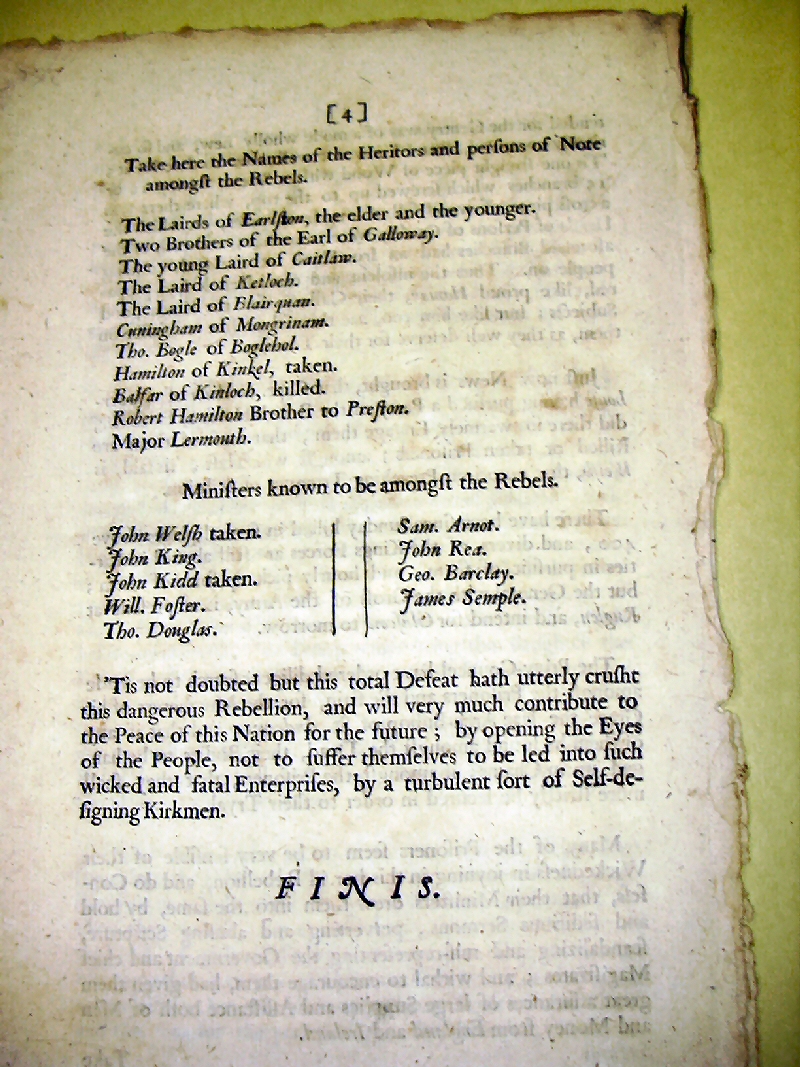 [4]
Take here the Names of the Heritors and perſons of Note
amongſt the Rebels.
The Lairds of Earlſton, the elder and the younger.
Two Brothers of the Earl of Galloway.
The young Laird of Caitlaw.
The Laird of Ketloch.
The Laird of Blairquan.
Cuningham of Mongrinam.
Tho. Bogle of Boglehol.
Hamilton of Kinkel, taken.
Balfar of Kinloch, killed.
Robert Hamilton Brother to Preſton.
Major Lermouth.
Miniſters known to be amongſt the Rebels.
John Welſh taken.
John King.
John Kidd taken.
Will. Foſter.
Tho. Douglas.
Sam. Arnot.
John Rea.
Geo. Barclay.
James Semple.
'Tis not doubted but this total Defeat hath utterly cruſht
this dangerous Rebellion, and will very much contribute to
the Peace of this Nation for the future; by opening the Eyes
of the People, not to ſuffer themſelves to be led into ſuch
wicked and fatal Enterpriſes, by a turbulent ſort of Self-de-
ſigning Kirkmen.
FINIS.